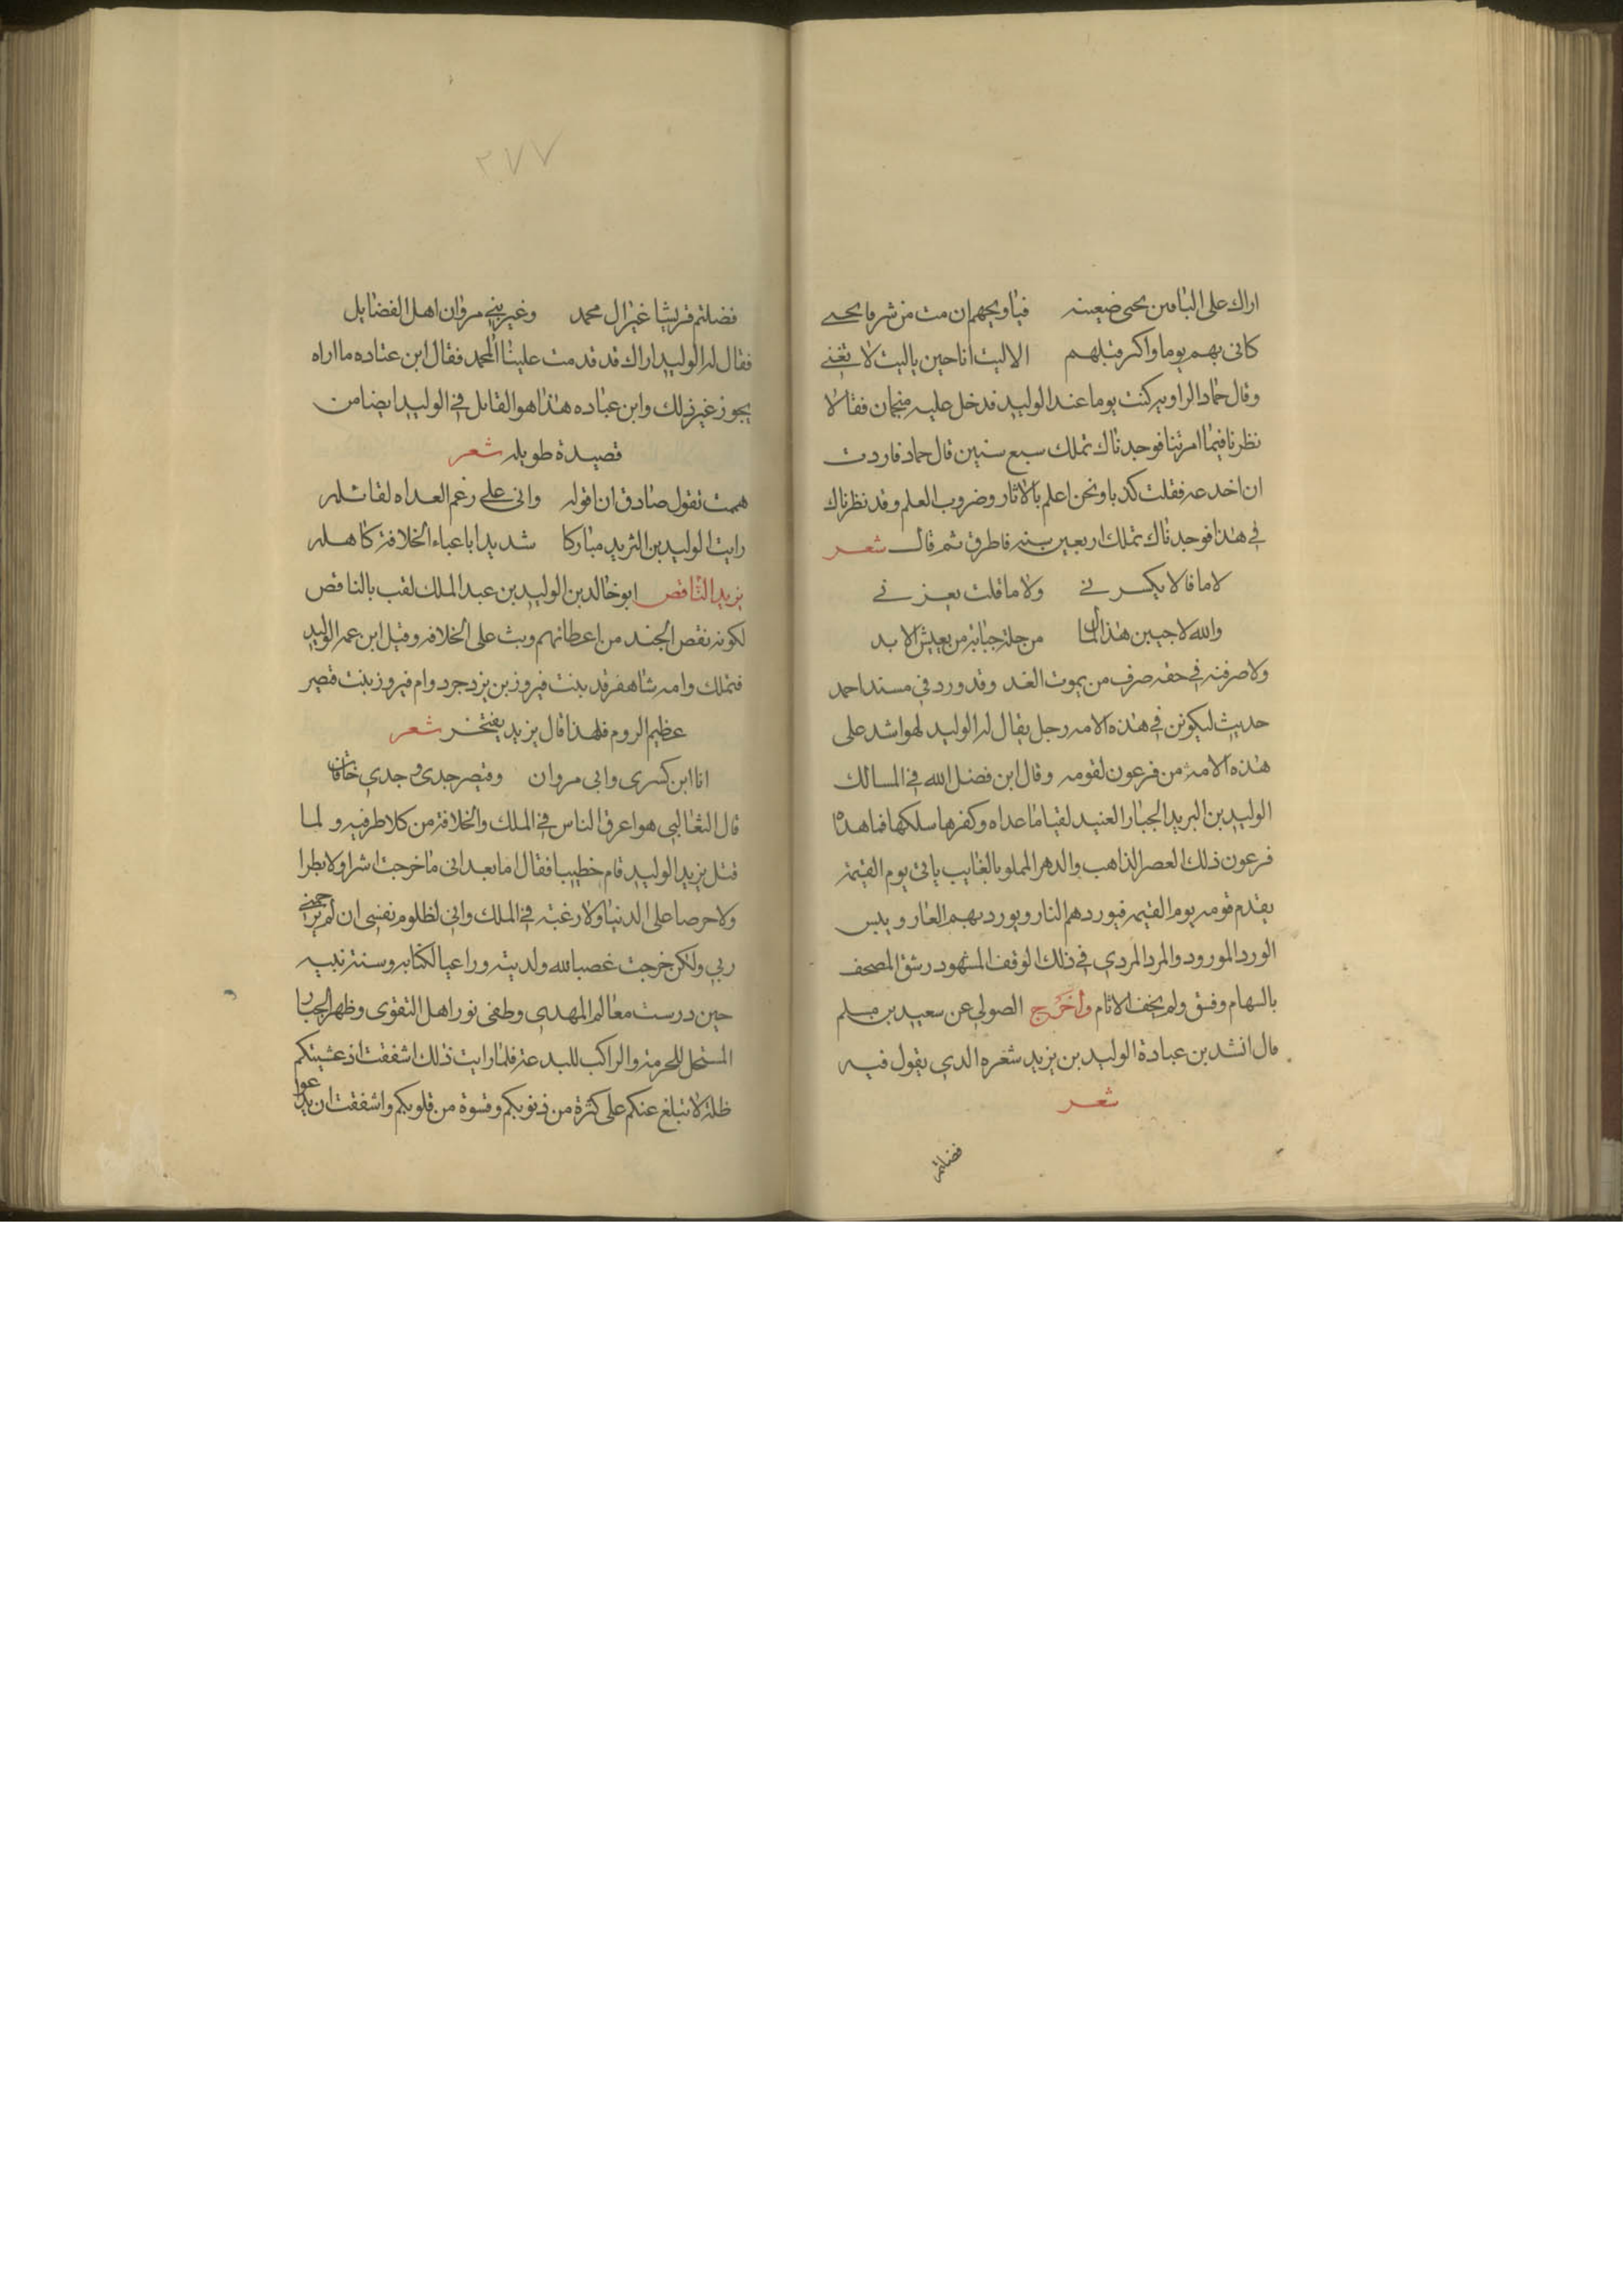 اراك على الباقين تجنى ضغينه فياويحهم ان مت من شر ما تجنى
كانى بهم يوما واكثر قيلهم الا ليت انا حين ياليت لا تغنى
وقال حماد الراويه كنت يوما عند الوليد فدخل عليه منجمان فقالا
نظرنا فيما امرتنا فوجدناك تملك سبع سنين قال حماد فاردت
ان اخدعه فقلت كدبا ونحن اعلم بالاثار وضروب العلم وقد نظرناك
في هذا فوجدناك تملك اربعين سنه فاطرق ثم قال شعر
لا ما قالا يكسرني ولا ما قلت يعزني
والله لاجبين هذا المال من حله جباية من يعيش الابد
ولاصرفنه في حقه صرف من يموت الغد وقد ورد في مسند احمد
حديث ليكونن في هذه الامه رجل يقال له الوليد لهو اشد على
هذه الامة من فرعون لقومه وقال ابن فضل الله في المسالك
الوليد بن اليزيد الجبار العنيد لقبا ما عداه وكفرها سلكها فما هداه
فرعون ذلك العصر الذاهب والدهر المملو بالغايب ياتى يوم القيمة
يقدم قومه يوم القيمه فيوردهم النار ويورد بهم العار وبيس
الورد المورود والمرد المردي في ذلك الوقف المشهود رشق المصحف
بالسهام وفسق ولم يخف الاثام واخرج الصولي عن سعيد بن مسلم
قال انشد بن عبادة الوليد بن يزيد شعره الدي يقول فيه
شعر
فضلتم
٢٧٧
فضلتم قريشا غير ال محمد وغير بني مروان اهل الفضايل
فقال له الوليد اراك قد قدمت علينا ال محمد فقال ابن عباده ما اراه
يجوز غير ذلك وابن عباده هذا هو القايل في الوليد ايضا من
قصيدة طويله شعر
همت تقول صادق ان اقوله وانى على رغم العداه لقائله
رايت الوليد بن اليزيد مباركا شديدا باعباء الخلافة كاهله
يزيد الناقص ابو خالد بن الوليد بن عبد الملك لقب بالناقص
لكونه نقص الجند من اعطائهم وبث على الخلافه وقتل ابن عمه الوليد
فتملك وامه شاهفرقد بنت فيروز بن يزدجرد وام فيروز بنت قصير
عظيم الروم فلهذا قال يزيد يفتخر شعر
انا ابن كسرى وابى مروان وقيصر جدى وجدي خاقان
قال الثعالبي هو اعرق الناس في الملك والخلافة من كلا طرفيه ولما
قتل يزيد الوليد قام خطيبا فقال اما بعد انى ما خرجت اشرا ولا بطرا
ولا حرصا على الدنيا ولا رغبة في الملك واني لظلوم نفسى ان لم يرحمني
ربي ولكن خرجت غصبا لله ولديته وراعيا لكتابه وسنة نبيه
حين درست معالم المهدى وطفى نور اهل التقوى وظهر الجبار
المستحل للحرمة والراكب للبدعة فلما رايت ذلك اشفقت اذ غشيتكم
ظلة لا تبلغ عنكم على كثرة من ذنوبكم وقسوة من قلوبكم واشفقت ان يدعوا